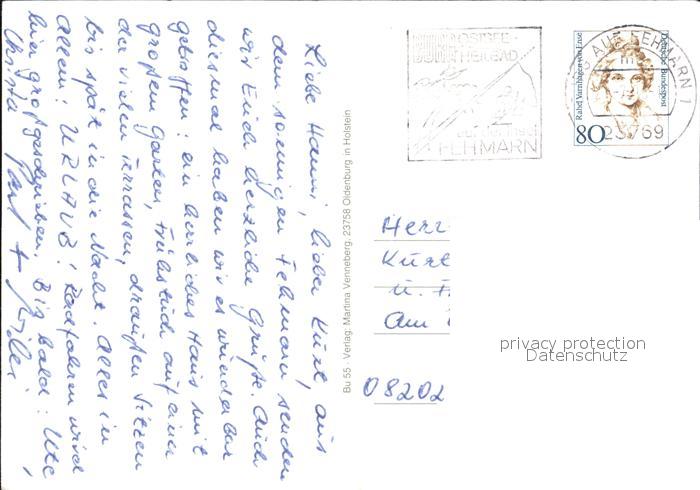 Liebe Hanni, lieber Kurt, aus
dem sonnigen Fehmarn senden
wir Euch herzliche Grüße. Auch
diesmal haben wir es wunderbar
getroffen: ein herrliches Haus mit
großem Garten, Frühstück auf einer
der vielen Terrassen, draußen sitzen
bis spät in die Nacht. Alles in
Allem: URLAUB! Radfahren wird
hier großgeschrieben. Bis bald: Ute,
Christa
Bu 55 · Verlag: Martina Venneberg, 23758 Oldenburg in Holstein
OSTSEE-
HEILBAD
auf der Insel
FEHMARN
Rahel Varnhagen von Ense
Deutsche Bundespost
80
AUF FEHMARN 1
23769
m
Herr
Kurt
u.
Am
08202
privacy protection
Datenschutz